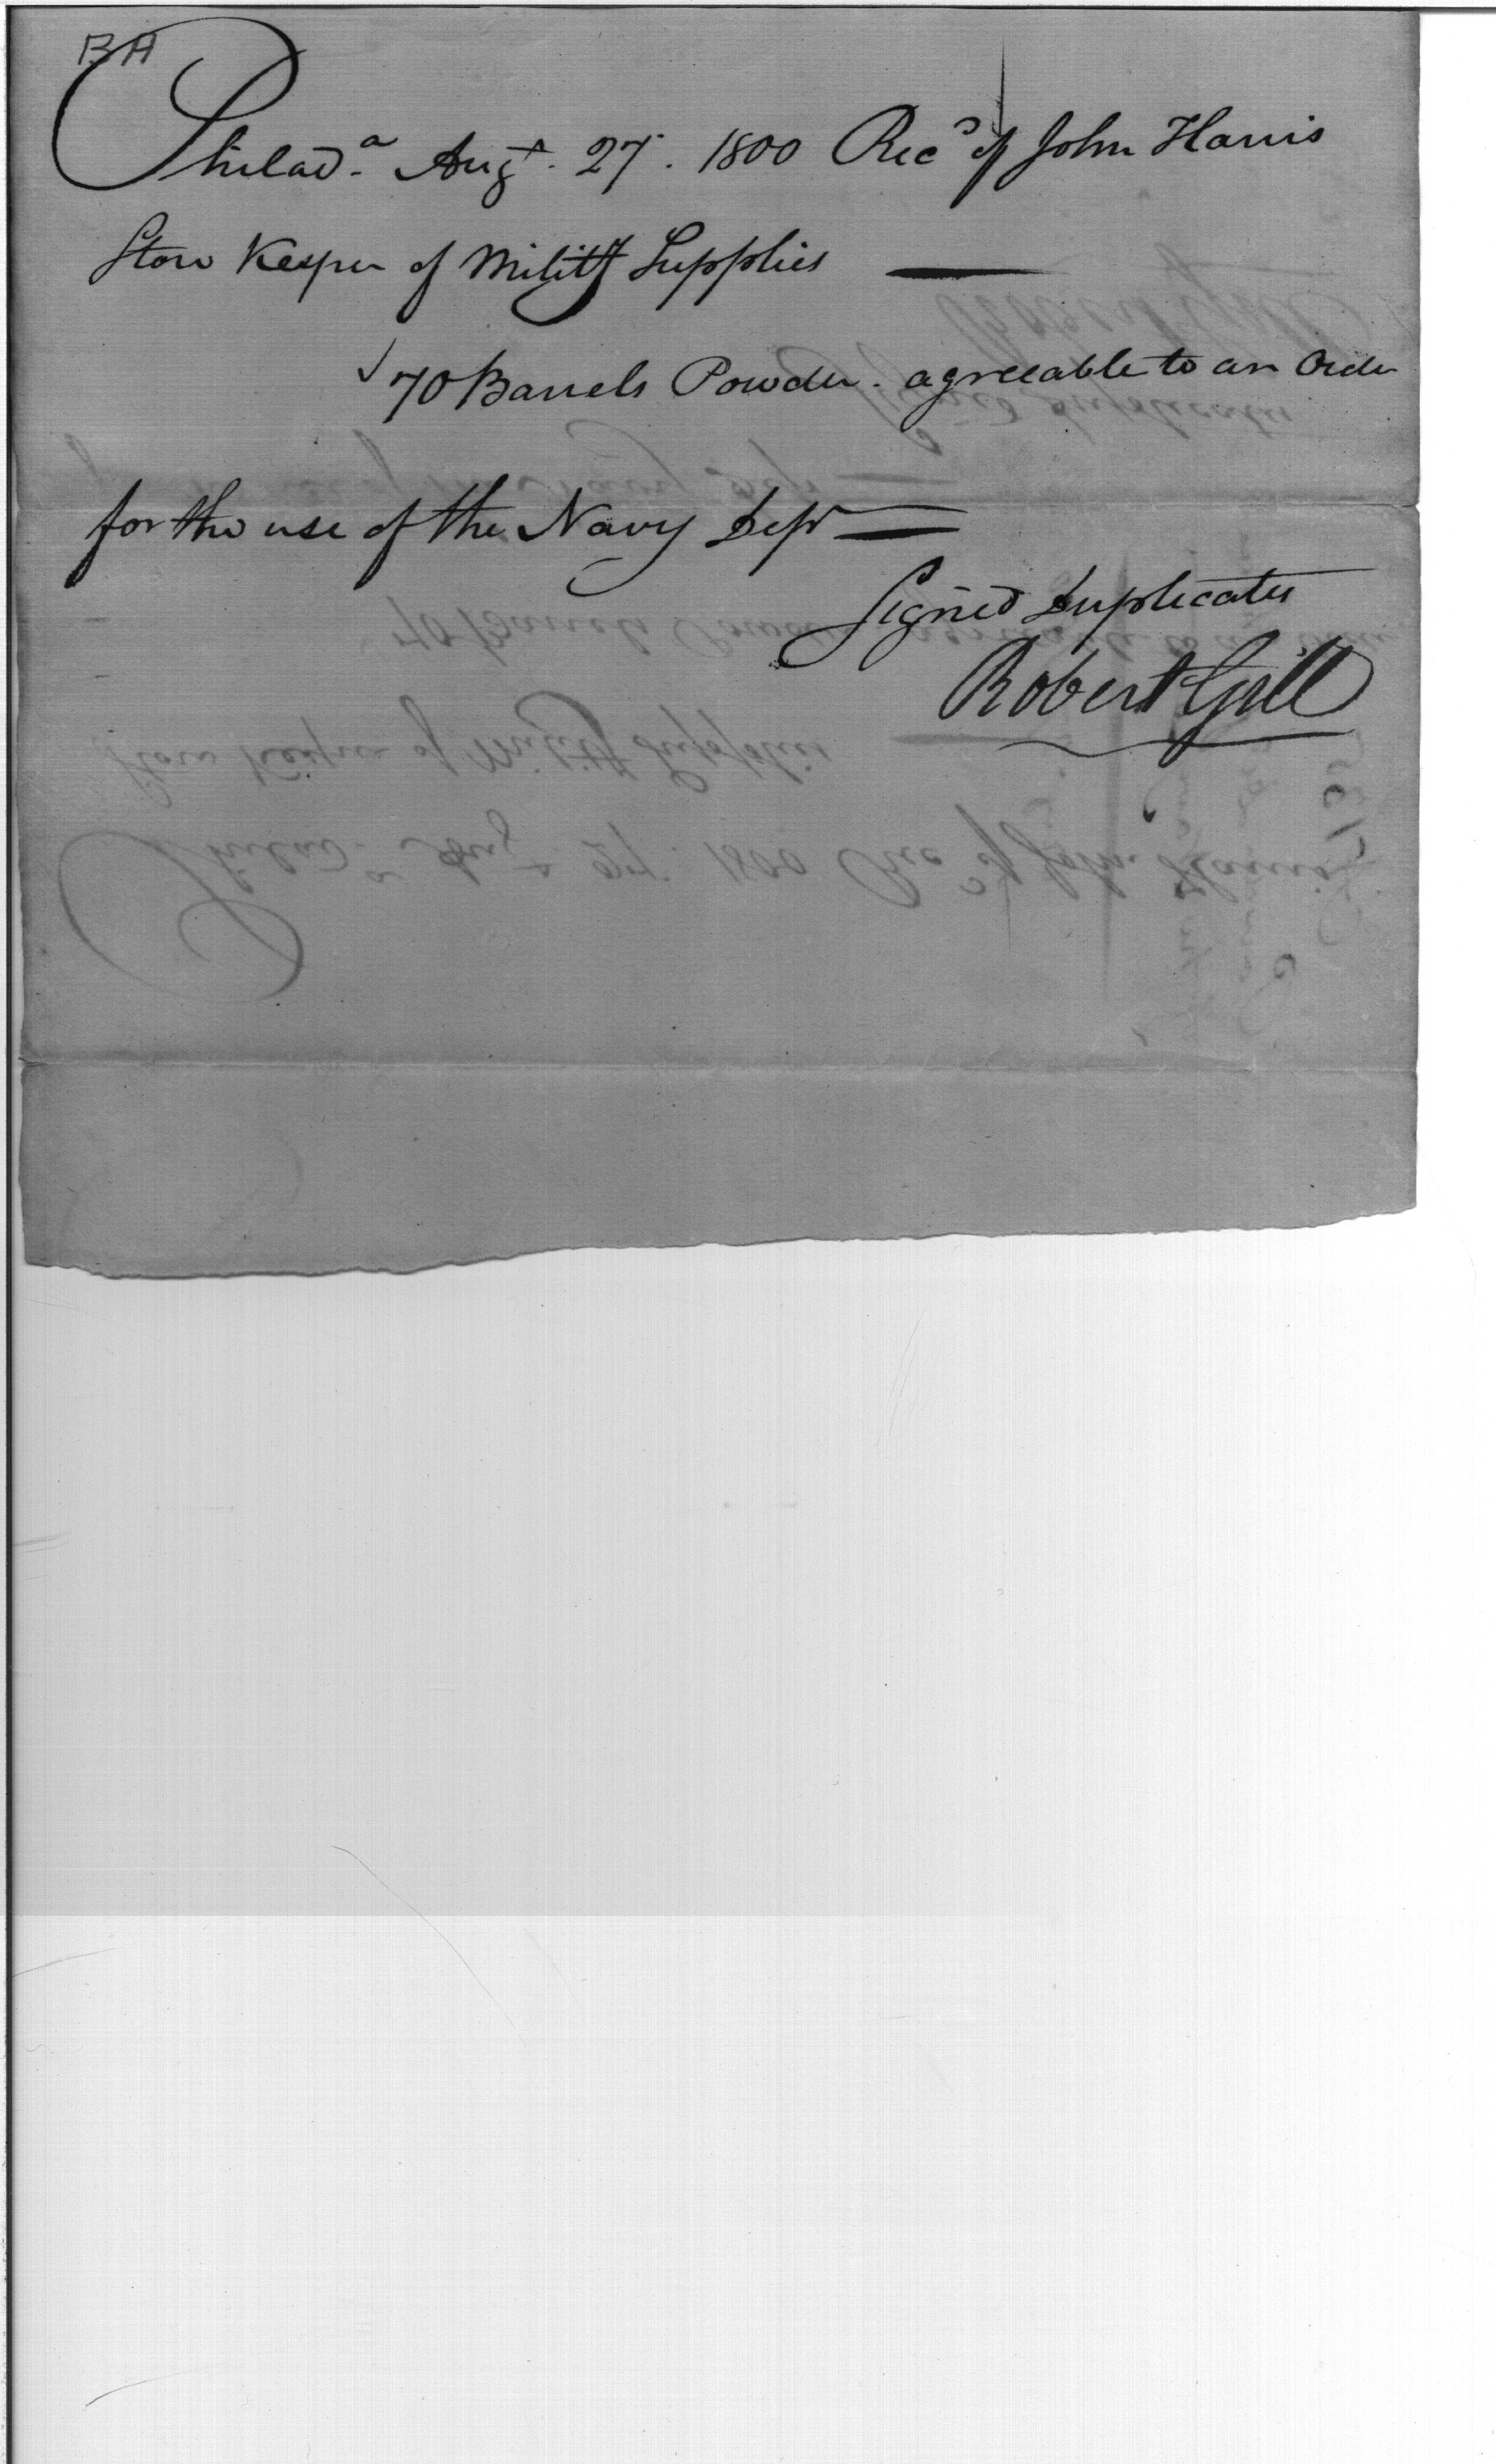 BA
Philad.a Augt. 27. 1800 Recd of John Harris
Store Keeper of Mility Supplies
70 Barrels Powder. agreeable to an Order
for the use of the Navy Dept
Signed Duplicates
Robert Gill